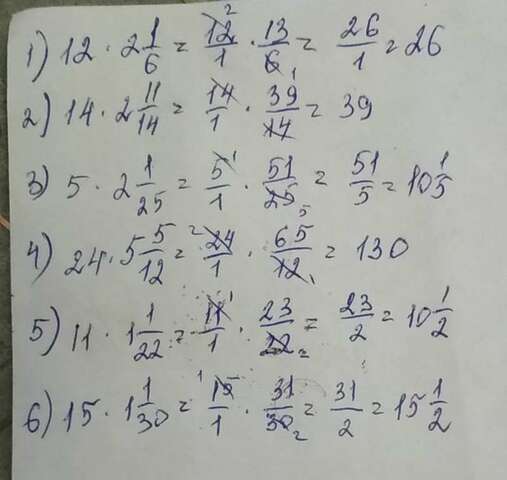 1) 12 · 2 1/6 = 12/1 · 13/6 = 26/1 = 26
2) 14 · 2 11/14 = 14/1 · 39/14 = 39
3) 5 · 2 1/25 = 5/1 · 51/25 = 51/5 = 10 1/5
4) 24 · 5 5/12 = 24/1 · 65/12 = 130
5) 11 · 1 1/22 = 11/1 · 23/22 = 23/2 = 10 1/2
6) 15 · 1 1/30 = 15/1 · 31/30 = 31/2 = 15 1/2